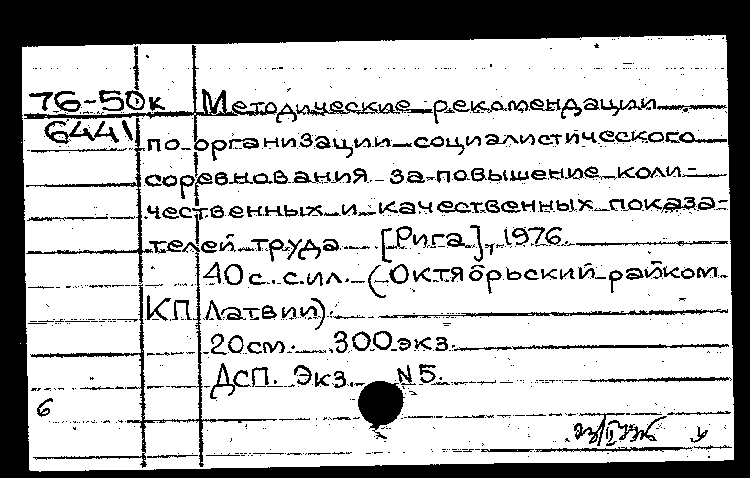 76-50к Методические рекомендации
6441 по организации социалистического
соревнования за повышение коли-
чественных и качественных показа-
телей труда [Рига], 1976.
40 с. с ил. (Октябрьский райком
КП Латвии).
20 см. 300 экз.
ДСП. Экз. N 5.
6